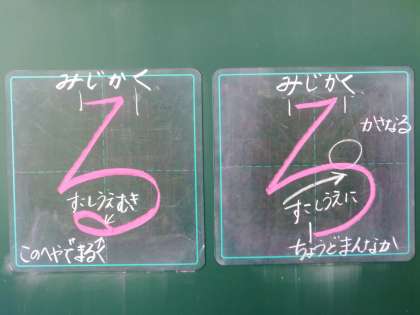 みじかく
る
すこしうえむき
このへやでまるく
みじかく
かさなる
ろ
すこしうえに
ちょうどまんなか